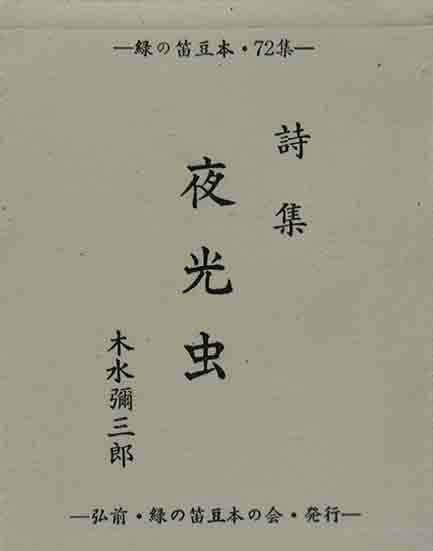 ―緑の笛豆本・72集―
詩集
夜光虫
木水彌三郎
―弘前・緑の笛豆本の会・発行―